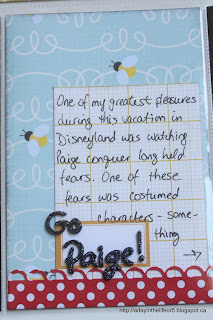 One of my greatest pleasures
during this vacation in
Disneyland was watching
Paige conquer long held
fears. One of these
fears was costumed
characters - some-
thing
Go
Paige!
http://adayinthelifeor5.blogspot.ca